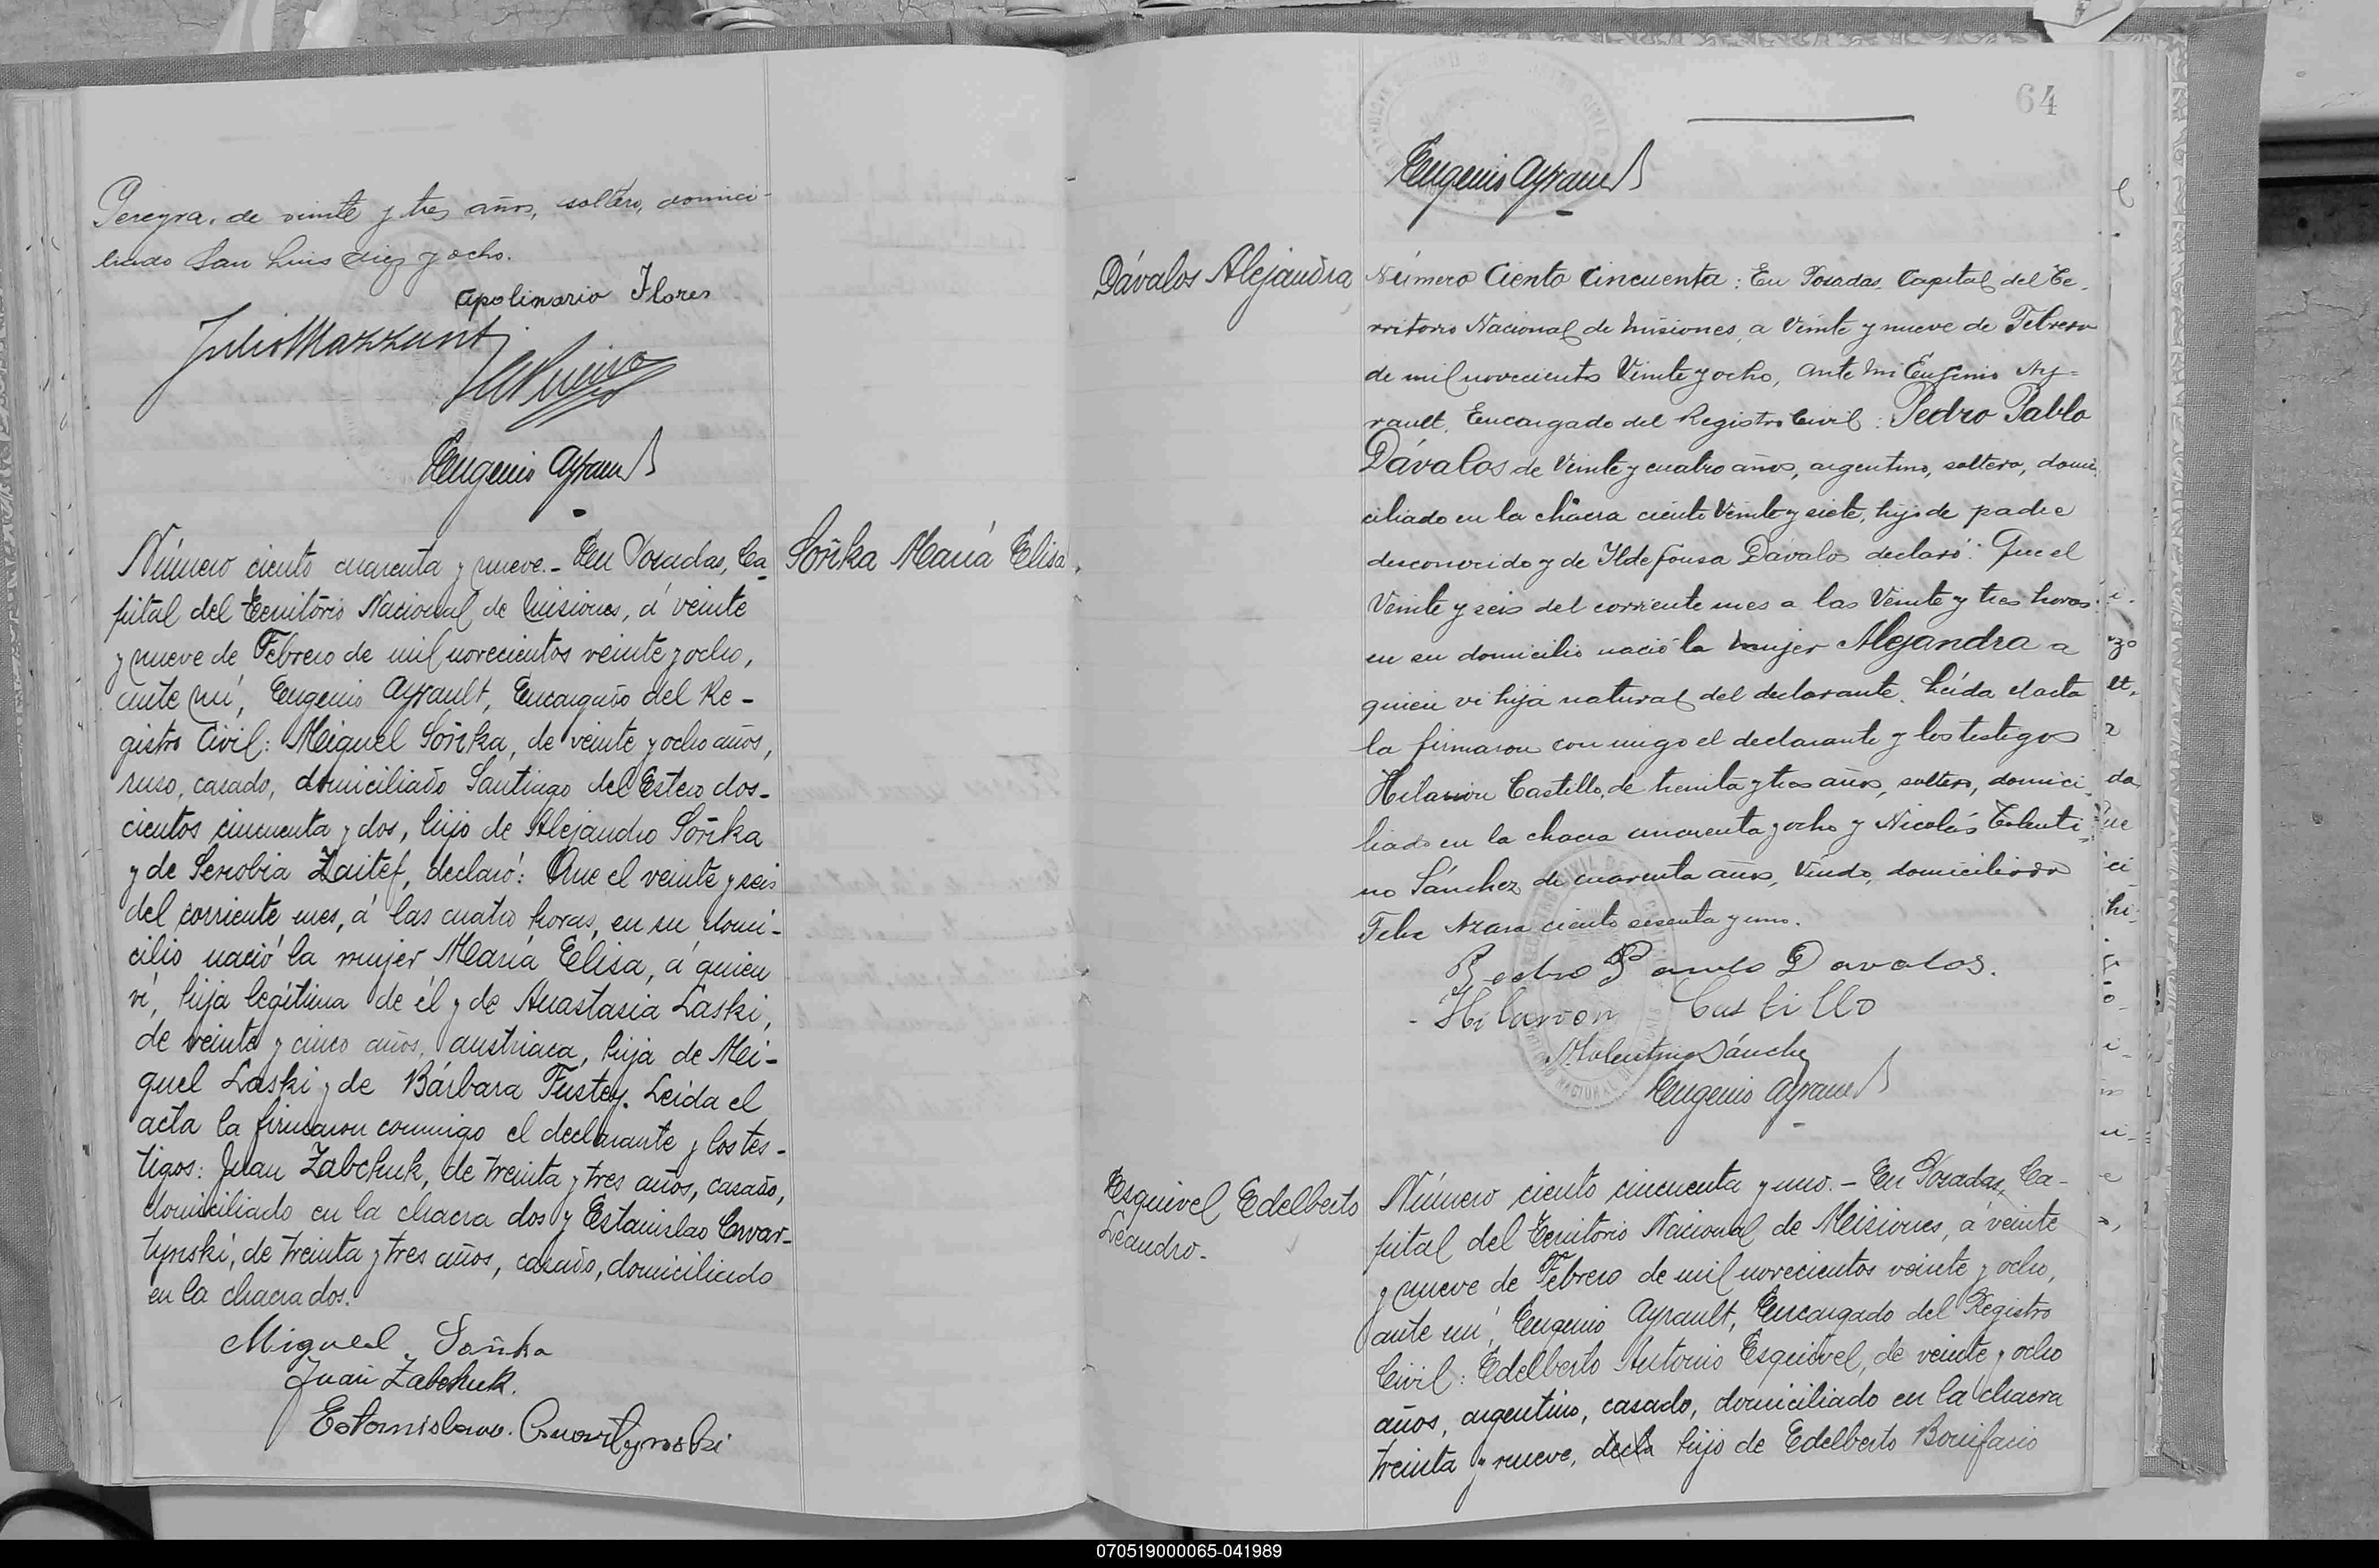 Pereyra, de veinte y tres años, soltero, domici-
liado San Luis diez y ocho.
Apolinario Flores
Julio Mazzanti
Eugenio Ayrault
Número ciento cuarenta y nueve.- En Posadas, Ca-
pital del Territorio Nacional de Misiones, á veinte
y nueve de Febrero de mil novecientos veinte y ocho,
ante mí, Eugenio Ayrault, Encargado del Re-
gistro Civil: Miguel Soñka, de veinte y ocho años,
ruso, casado, domiciliado Santiago del Estero dos-
cientos cincuenta y dos, hijo de Alejandro Soñka
y de Senobia Zaitef, declaró: Que el veinte y seis
del corriente mes, á las cuatro horas, en su domi-
cilio nació la mujer María Elisa, á quien
ví, hija legítima de él y de Anastasia Laski,
de veinte y cinco años, austriaca, hija de Mi-
guel Laski y de Bárbara Fustey. Leída el
acta la firmaron conmigo el declarante y los tes-
tigos: Juan Zabchuk, de treinta y tres años, casado,
domiciliado en la chacra dos y Estanislao Cwar-
tynski, de treinta y tres años, casado, domiciliado
en la chacra dos.
Miguel Soñka
Juan Zabchuk.
Estanislavo. Cwartynski
Soñka María Elisa.
64
Eugenio Ayrault
Dávalos Alejandra
Número Ciento Cincuenta: En Posadas, Capital del Te-
rritorio Nacional de Misiones, a Veinte y nueve de Febrero
de mil novecientos Veinte y ocho, ante mi Eugenio Ay-
rault, Encargado del Registro Civil: Pedro Pablo
Dávalos de Veinte y cuatro años, argentino, soltero, domi-
ciliado en la chacra ciento Veinte y siete, hijo de padre
desconocido y de Ildefonsa Dávalos declaró: Que el
Veinte y seis del corriente mes a las Veinte y tres horas
en su domicilio nació la mujer Alejandra a
quien vi hija natural del declarante. Leída el acta
la firmaron conmigo el declarante y los testigos
Hilarion Castillo, de treinta y tres años, soltero, domici-
liado en la chacra cincuenta y ocho y Nicolás Tolenti-
no Sánchez de cuarenta años, Viudo, domiciliado
Felix Azara ciento sesenta y uno.
Pedro Paulo Davalos.
Hilarion Castillo
N. Tolentino Sánchez
Eugenio Ayrault
Esquivel Edelberto
Leandro-
Número ciento cincuenta y uno.- En Posadas, Ca-
pital del Territorio Nacional de Misiones, á veinte
y nueve de Febrero de mil novecientos veinte y ocho,
ante mí, Eugenio Ayrault, Encargado del Registro
Civil: Edelberto Antonio Esquivel, de veinte y ocho
años, argentino, casado, domiciliado en la chacra
treinta y nueve, decla hijo de Edelberto Bonifacio
070519000065-041989